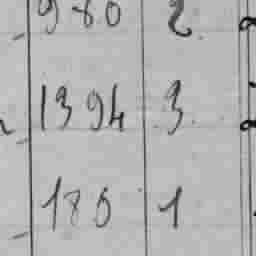 980 2
1394 3
180 1